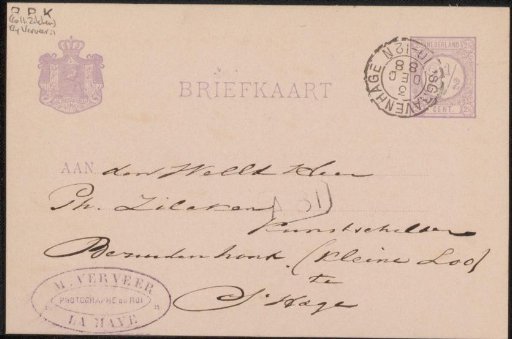 R.P.K
(Coll. Zilcken)
By Verveer
BRIEFKAART
NEDERLAND
1/2
CENT
'SGRAVENHAGE
3
DEC
88
11-12N
AAN den WelEd Heer
Ph. Zilcken
Kunstschilder
Bezuidenhout (Kleine Loo)
te
s'Hage
M. VERVEER
PHOTOGRAPHE DU ROI
LA HAYE